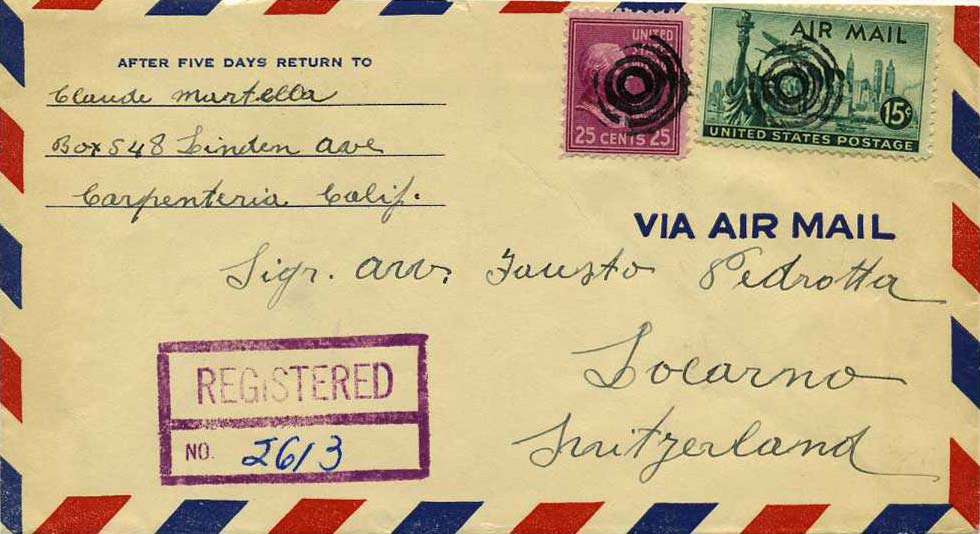 AFTER FIVE DAYS RETURN TO
Claude Martella
Box 548 Linden Ave
Carpenteria Calif.
UNITED
25 CENTS 25
AIR MAIL
15¢
UNITED STATES POSTAGE
VIA AIR MAIL
Sigr. Avv. Fausto Pedrotta
Locarno
Switzerland
REGISTERED
NO. 2613